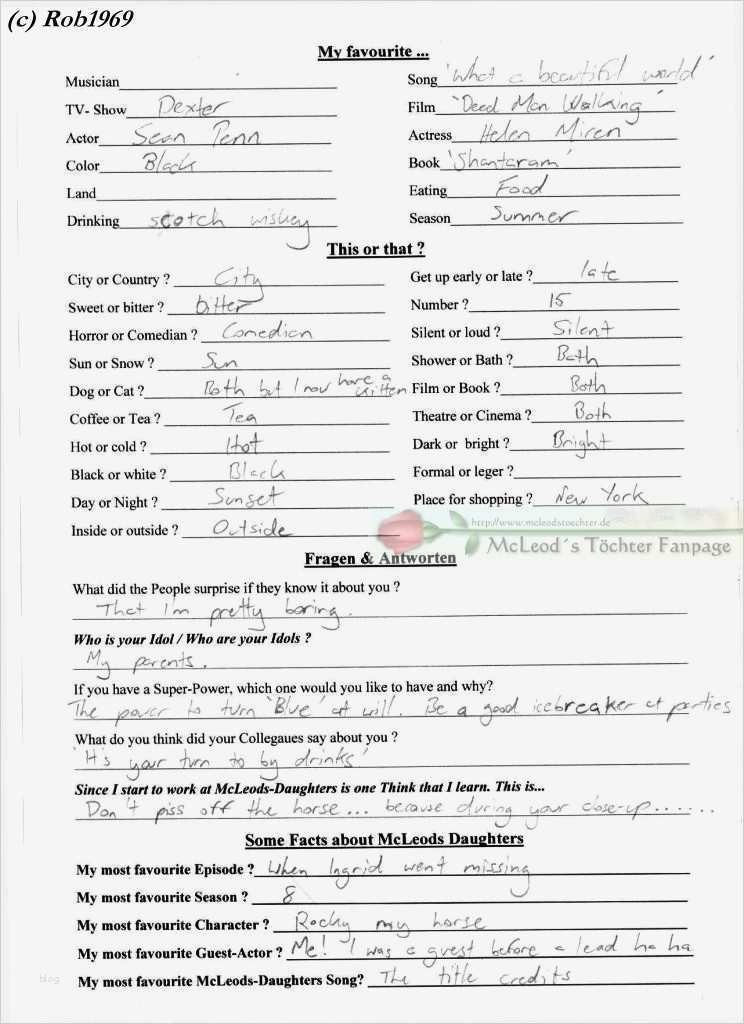 (c) Rob1969
My favourite ...
Musician
Song 'What a beautiful world'
TV- Show Dexter
Film 'Dead Man Walking'
Actor Sean Penn
Actress Helen Miren
Color Black
Book 'Shantaram'
Land
Eating Food
Drinking scotch wiskey
Season Summer
This or that ?
City or Country ? City
Get up early or late ? late
Sweet or bitter ? bitter
Number ? 15
Horror or Comedian ? Comedian
Silent or loud ? Silent
Sun or Snow ? Sun
Shower or Bath ? Bath
Dog or Cat ? Both but I now have a kitten
Film or Book ? Both
Coffee or Tea ? Tea
Theatre or Cinema ? Both
Hot or cold ? Hot
Dark or bright ? Bright
Black or white ? Black
Formal or leger ?
Day or Night ? Sunset
Place for shopping ? New York
Inside or outside ? Outside
http://www.mcleodstoechter.de
McLeod´s Töchter Fanpage
Fragen & Antworten
What did the People surprise if they know it about you ?
That I'm pretty boring.
Who is your Idol / Who are your Idols ?
My parents.
If you have a Super-Power, which one would you like to have and why?
The power to turn 'Blue' at will. Be a good icebreaker at parties
What do you think did your Collegaues say about you ?
'It's your turn to by drinks'
Since I start to work at McLeods-Daughters is one Think that I learn. This is...
Don't piss off the horse ... because during your close-up......
Some Facts about McLeods Daughters
My most favourite Episode ? When Ingrid went missing
My most favourite Season ? 8
My most favourite Character ? Rocky my horse
My most favourite Guest-Actor ? Me! I was a guest before a lead ha ha
My most favourite McLeods-Daughters Song? The title credits
blog